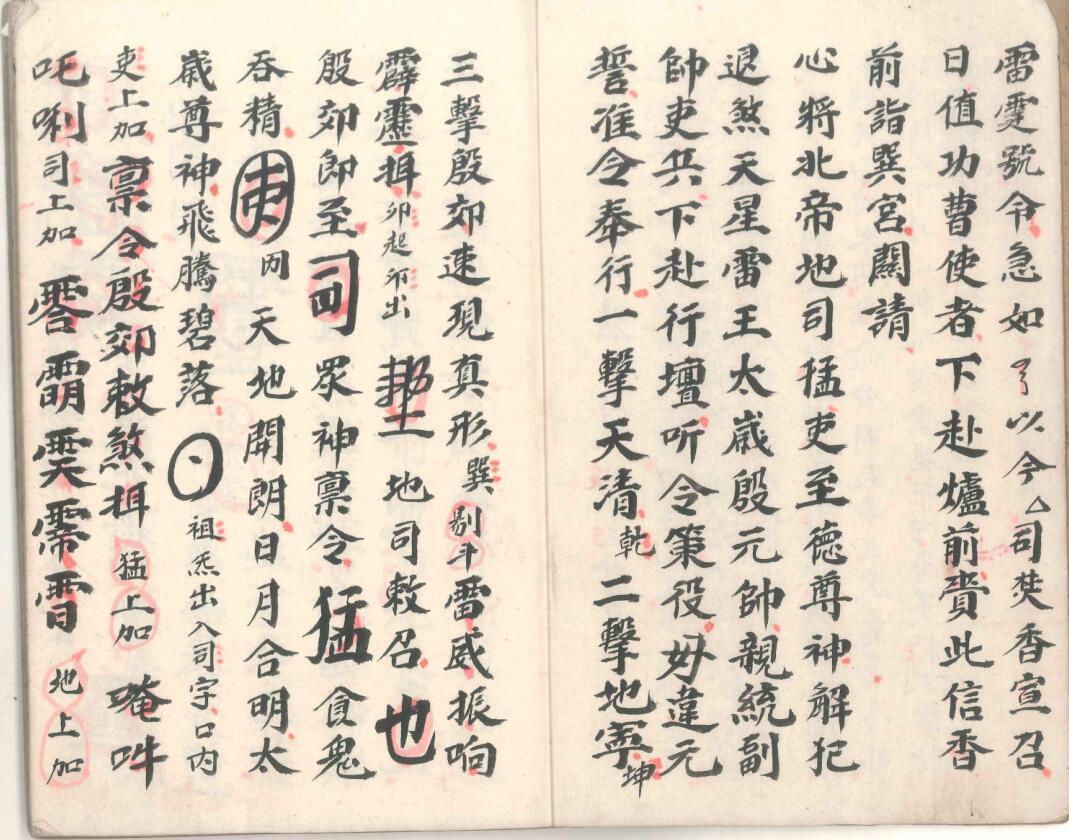 雷霆號令急如了以今△司焚香宣召
日值功曹使者下赴爐前賫此信香
前詣巽宮關請
心將北帝地司猛吏至德尊神解犯
退煞天星雷王太歲殷元帥親統副
帥吏兵下赴行壇听令策役毋違元
誓准令奉行一擊天清乾二擊地寧坤
三擊殷郊速現真形巽剔斗雷威振响
霹靂揖卯起卯出地司敕召也
殷郊即至司眾神禀令猛食鬼
吞精吏内天地開朗日月合明太
歲尊神飛騰碧落日祖炁出入司字口内
吏上加禀令殷郊敕煞揖猛上加唵吽
吒唎司上加
地上加